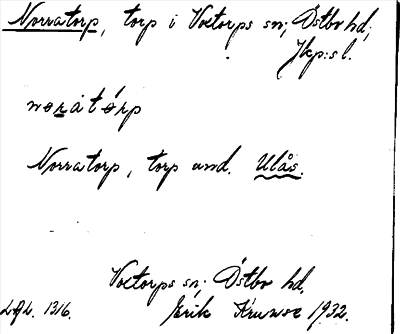 Norratorp, torp i Voxtorps sn; Östbo hd;
Jkp:s l.
noratórp
Norratorp, torp und. Ulås.
Voxtorps sn; Östbo hd.
LAL. 1316. Erik Krunse 1932.